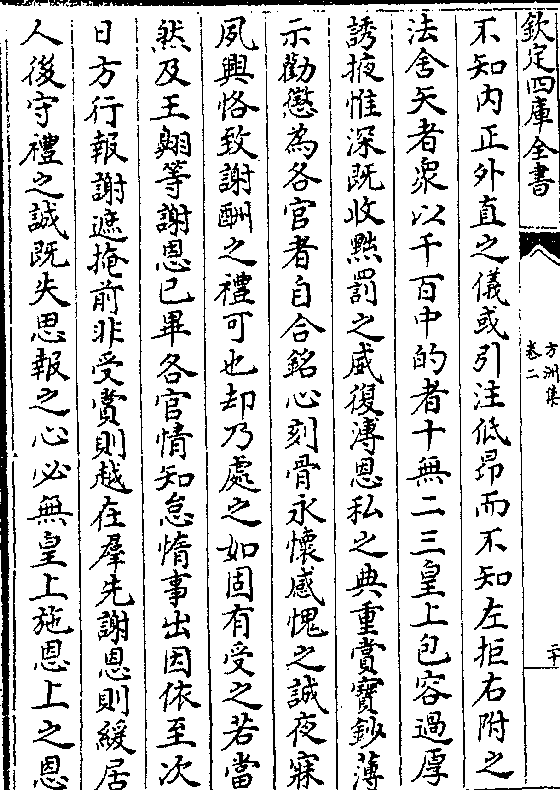 欽定四庫全書
方洲集
卷二
二十
不知内正外直之儀或引注低昂而不知左拒右附之
法舍矢者衆以千百中的者十無二三皇上包容過厚
誘掖惟深既收㸃罰之威復溥恩私之典重賞寶鈔薄
示勸懲為各官者自合銘心刻骨永懷感愧之誠夜寐
夙興恪致謝酬之禮可也却乃處之如固有受之若當
然及王翺等謝恩已畢各官情知怠惰事出因依至次
日方行報謝遮掩前非受賞則越在羣先謝恩則緩居
人後守禮之誠既失思報之心必無皇上施恩上之恩